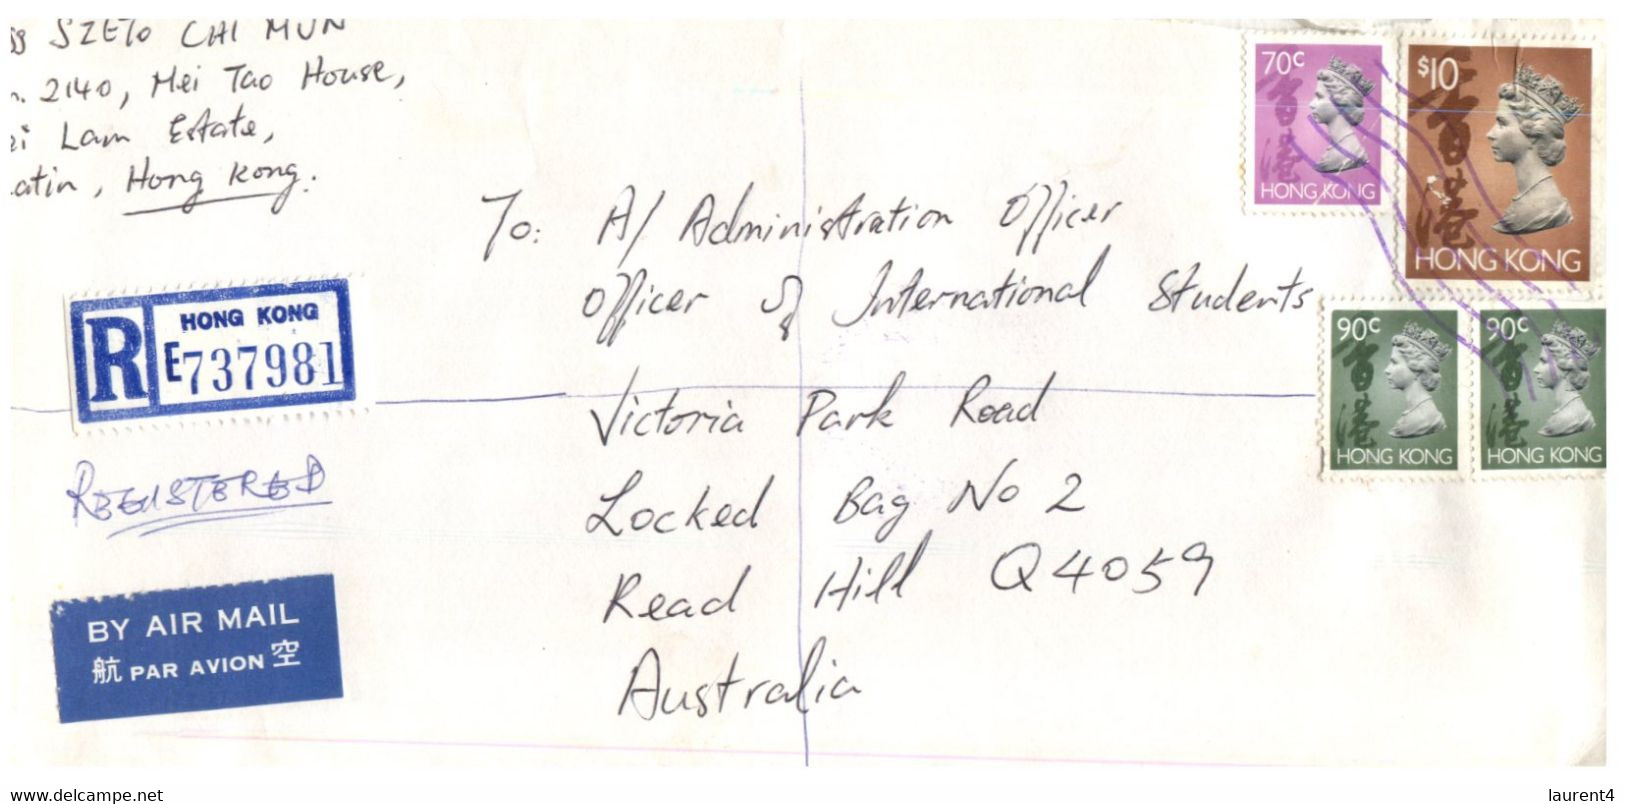 SZETO CHI MUN
. 2140, Mei Tao House,
ei Lam Estate,
atin, Hong Kong.
To: A/ Administration Officer
Officer of International Students
Victoria Park Road
Locked Bag No 2
Read Hill Q4059
Australia
R
HONG KONG
E737981
REGISTERED
BY AIR MAIL
航 PAR AVION 空
70c
香港
HONG KONG
$10
香港
HONG KONG
90c
香港
HONG KONG
90c
香港
HONG KONG
www.delcampe.net
laurent4